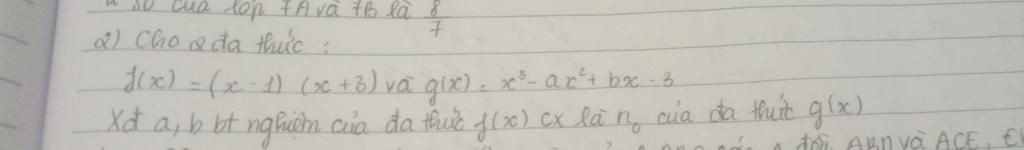 số của lớp 7A và 7B là 8/7
2) Cho 2 đa thức :
f(x) = (x - 1) (x + 3) và g(x) = x³ - ax² + bx - 3
Xđ a, b bt nghiệm của đa thức f(x) cx là n₀ của đa thức g(x)
đội ABD và ACE,